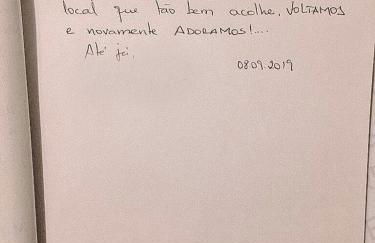 local que tão bem acolhe, VOLTAMOS
e novamente ADORAMOS!....
Até
08.09.2019